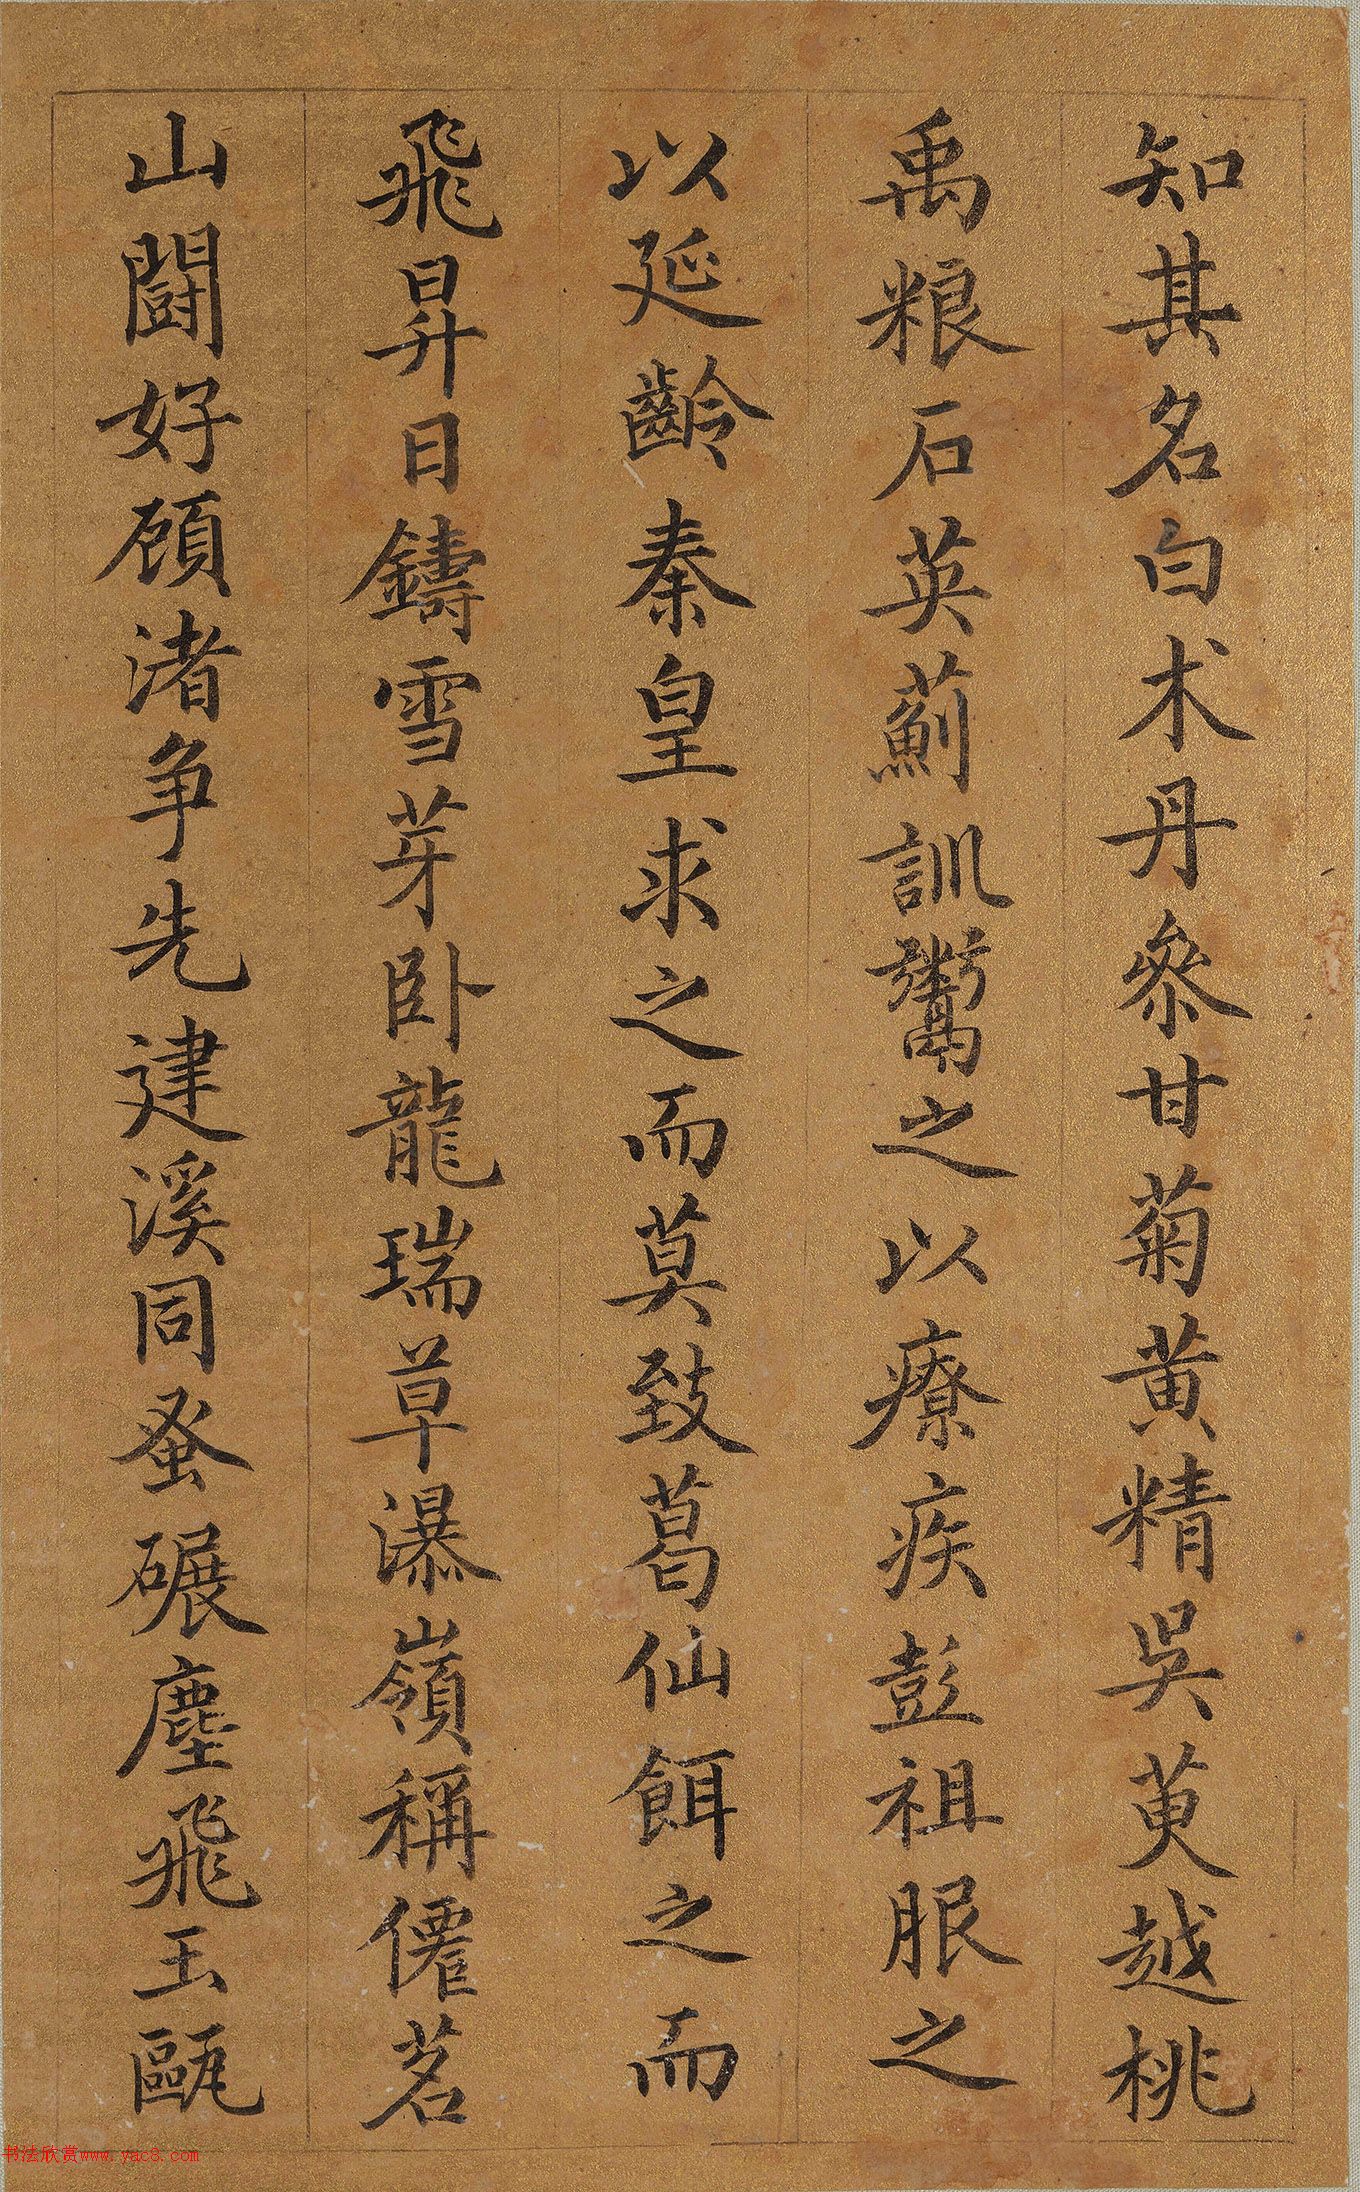 知其名白术丹參甘菊黃精吳茰越桃
禹粮石英薊訓鬻之以療疾彭祖服之
以延齡秦皇求之而莫致葛仙餌之而
飛昇日鑄雪芽卧龍瑞草瀑嶺稱僊茗
山鬪好顧渚争先建溪同蚤碾塵飛玉甌
书法欣赏www.yac8.com